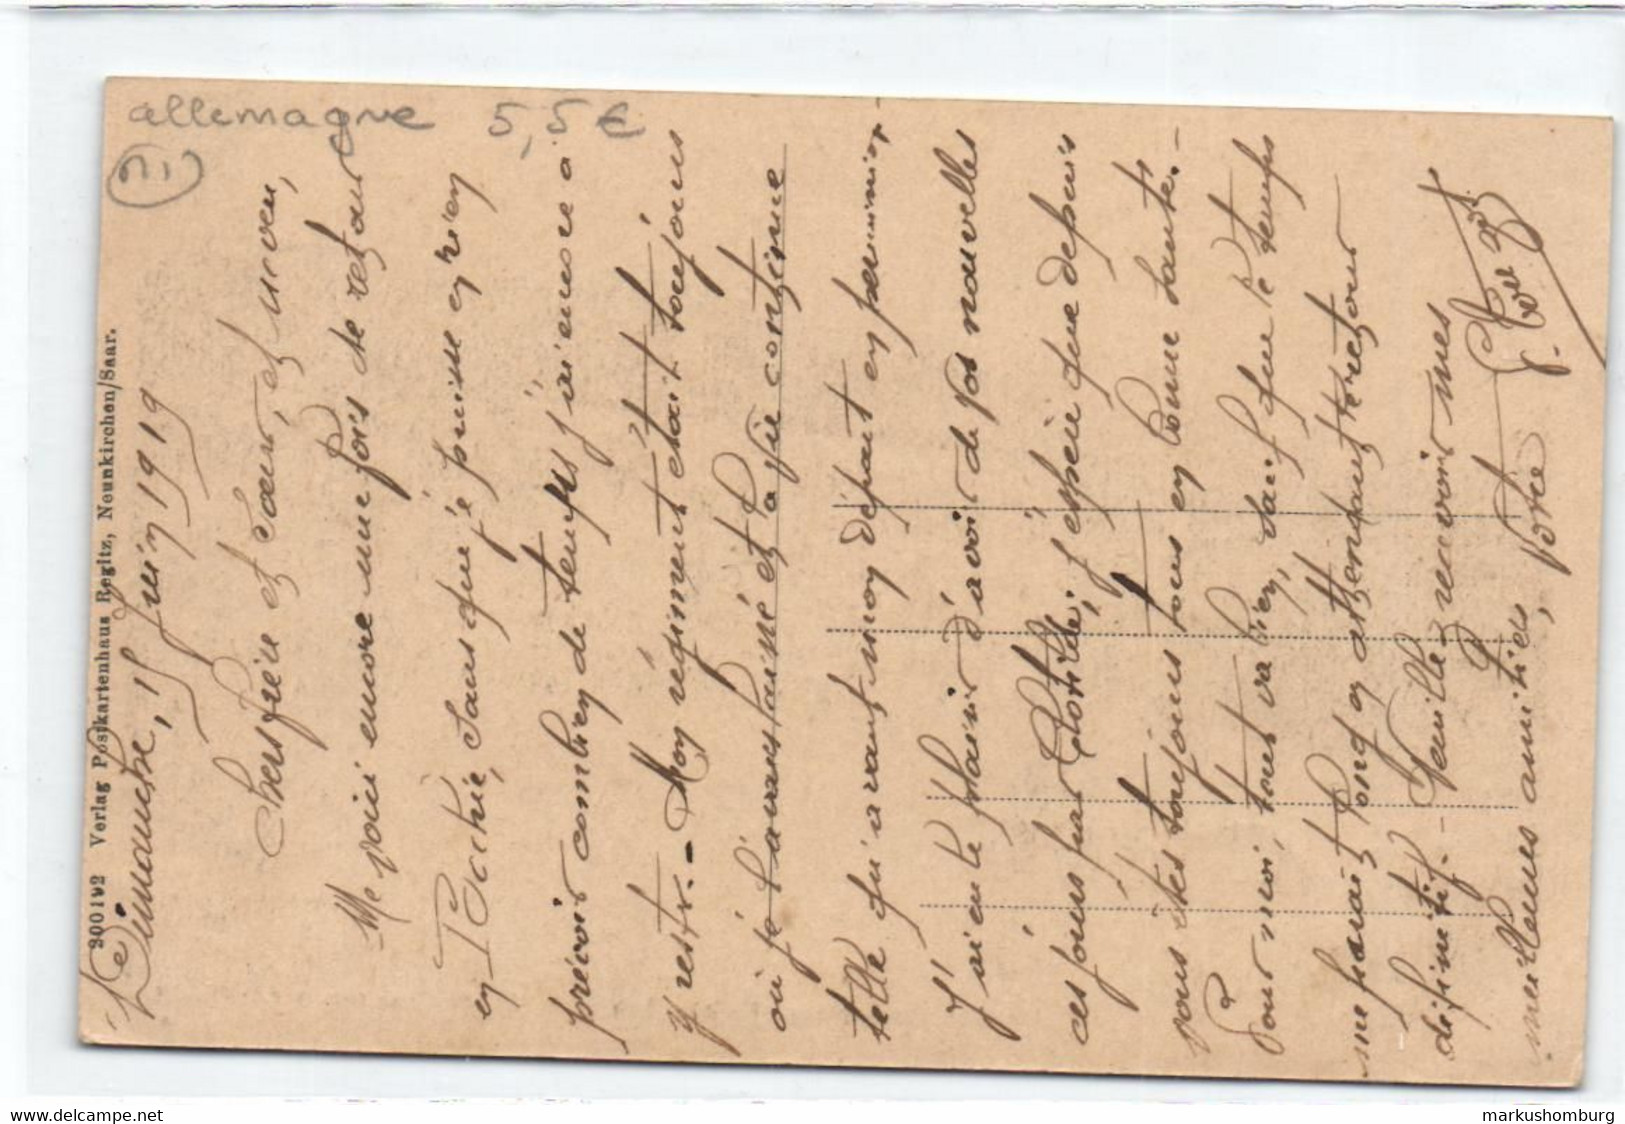 allemagne 5,5 €
90012 Verlag Postkartenhaus Regitz, Neunkirchen/Saar.
Dimanche, 15 Juin 1919
Chers frère et sœur, et neveu,
Me voici encore une fois de retour
en Bochie, sans que je puisse en rien
prévoir combien de temps j'ai encore à
y rester. - Mon régiment était toujours
où je l'avais laissé et la vie continue
telle qu'avant mon départ en permission -
J'ai eu le plaisir d'avoir de vos nouvelles
ces jours par Clotilde; j'espère que depuis
vous êtes toujours tous en bonne santé. -
Pour moi, tout va bien, sauf que le temps
me paraît long en attendant le retour
définitif. - Veuillez recevoir mes
meilleures amitiés, Votre
delcampe.net
markushomburg